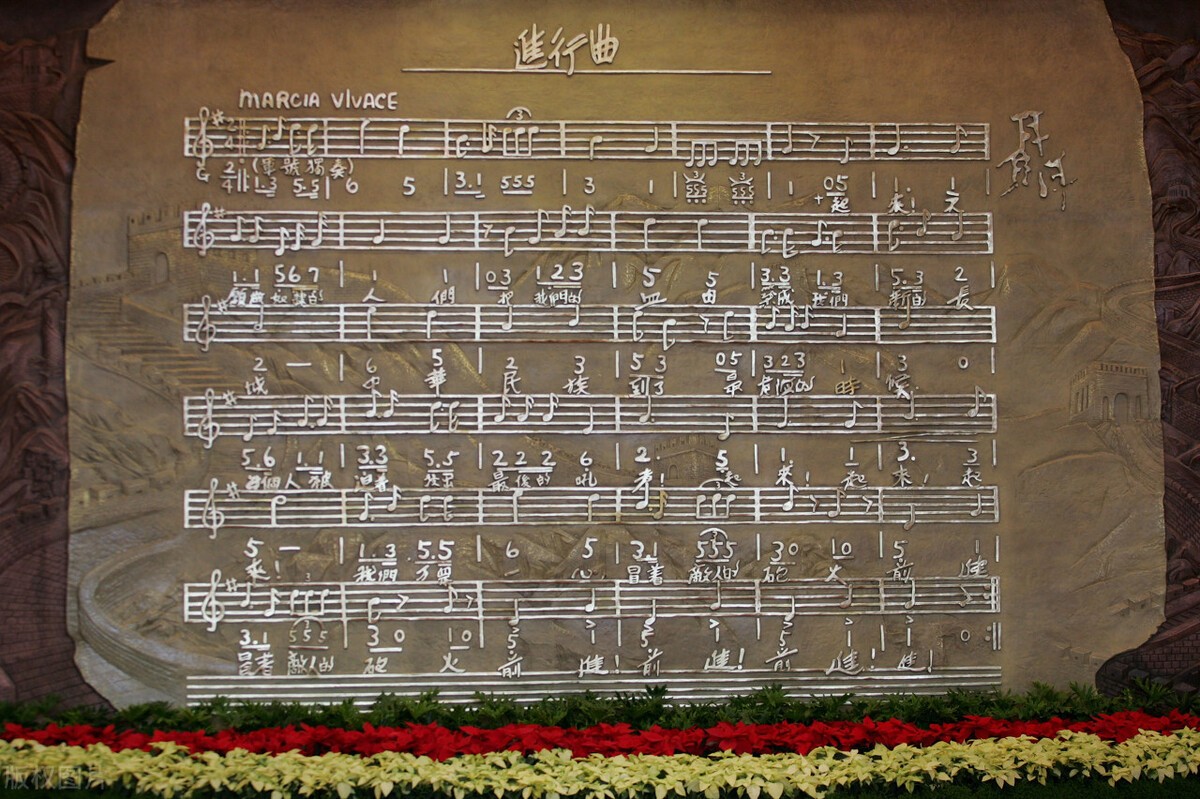 進行曲
MARCIA VIVACE
3
(軍號獨奏)
G 2/4 1.3 5.5 | 6 5 | 3.1 555 | 3 1 | 555 555 | 1 05 |
起 來! 不
聶
1.1 567 | 1 1 | 03 123 | 5 5 | 3.3 1.3 | 5.3 2
願做奴隸的 人 們 把 我們的 血 肉 築成 我們 新的 長
2 — | 6 5 | 2 3 | 5 3 05 | 323 1 | 3 0 |
城 中 華 民 族 到 最 危險的 時 候
5.6 1.1 | 3.3 5.5 | 222 6 | 2. 5 | 1. 1 | 3. 3 |
每個人被 迫着 發出 最後的 吼 聲! 起 來! 起 來! 起
5 — | 1.3 5.5 | 6 5 | 3.1 555 | 30 10 | 5 1 |
來! 我們 萬衆 一 心 冒着 敵人的 砲 火 前 進
3.1 555 | 30 10 | 5 1 | 5 1 | 5 1 | 1 0
冒着 敵人的 砲 火 前 進! 前 進! 前 進! 進!
版权图片